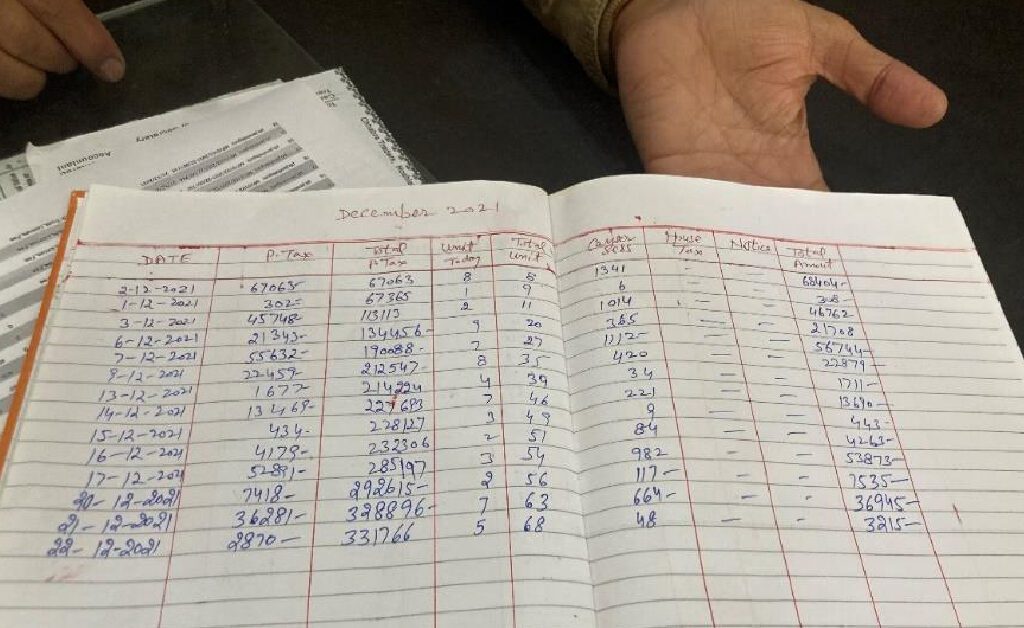 Accountant
December 2021
DATE P.Tax Total P.Tax Unit Today Total Unit Cess House Tax Notice Total Amount
2-12-2021 67063- 67063 8 8 1341 - - 68404-
1-12-2021 302- 67365 1 9 6 - - 308
3-12-2021 45748- 113113 2 11 1014 - - 46762-
6-12-2021 21343- 134456- 9 20 365 - - 21708
7-12-2021 55632- 190088- 7 27 1112- - - 56744-
9-12-2021 22459- 212547- 8 35 420 - - 22879-
13-12-2021 1677- 214224 4 39 34 - - 1711-
14-12-2021 13469- 227693 7 46 221 - - 13690-
15-12-2021 434- 228127 3 49 9 - - 443-
16-12-2021 4179- 232306 2 51 84 - - 4263-
17-12-2021 52891- 285197 3 54 982 - - 53873-
20-12-2021 7418- 292615- 2 56 117- - - 7535-
21-12-2021 36281- 328896- 7 63 664- - - 36945-
22-12-2021 2870- 331766 5 68 48 - - 3215-